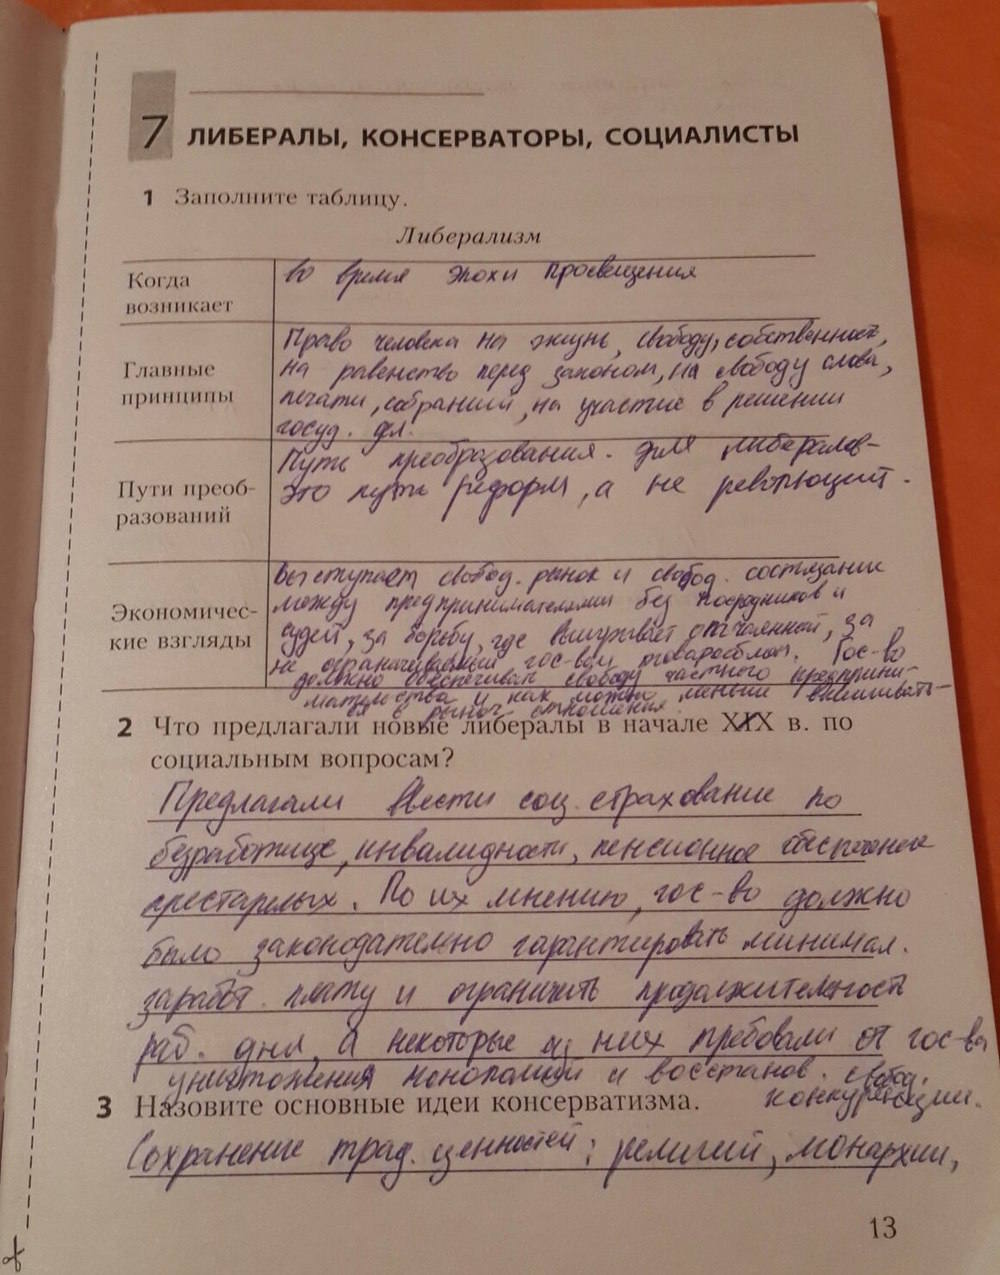 7 ЛИБЕРАЛЫ, КОНСЕРВАТОРЫ, СОЦИАЛИСТЫ
1 Заполните таблицу.
Либерализм
Когда
возникает
во время эпохи просвещения
Главные
принципы
Право человека на жизнь, свободу, собственность,
на равенство перед законом, на свободу слова,
печати, собраний, на участие в решении
госуд. дел.
Пути преоб-
разований
Путь преобразования. для либералов-
это путь реформ, а не революций.
Экономичес-
кие взгляды
Выступает свобод. рынок и свобод. состязание
между предпринимателями без посредников и
судей, за борьбу, где выигрывает за
не гос-вом Гос-во
должно обеспечивать свободу частного предприни-
мательства и как можно меньше вмешивать-
ся в рыноч отношения.
2 Что предлагали новые либералы в начале XIX в. по
социальным вопросам?
Предлагали ввести соц. страхование по
безработице, инвалидности, пенсионное обеспечение
престарелых. По их мнению, гос-во должно
было законодательно гарантировать минимал.
заработ. плату и ограничить продолжительность
раб. дня, а некоторые из них требовали от гос-ва
уничтожения монополий и восстанов. свобод.
конкуренции.
3 Назовите основные идеи консерватизма.
Сохранение трад. ценностей: религии, монархии,
13